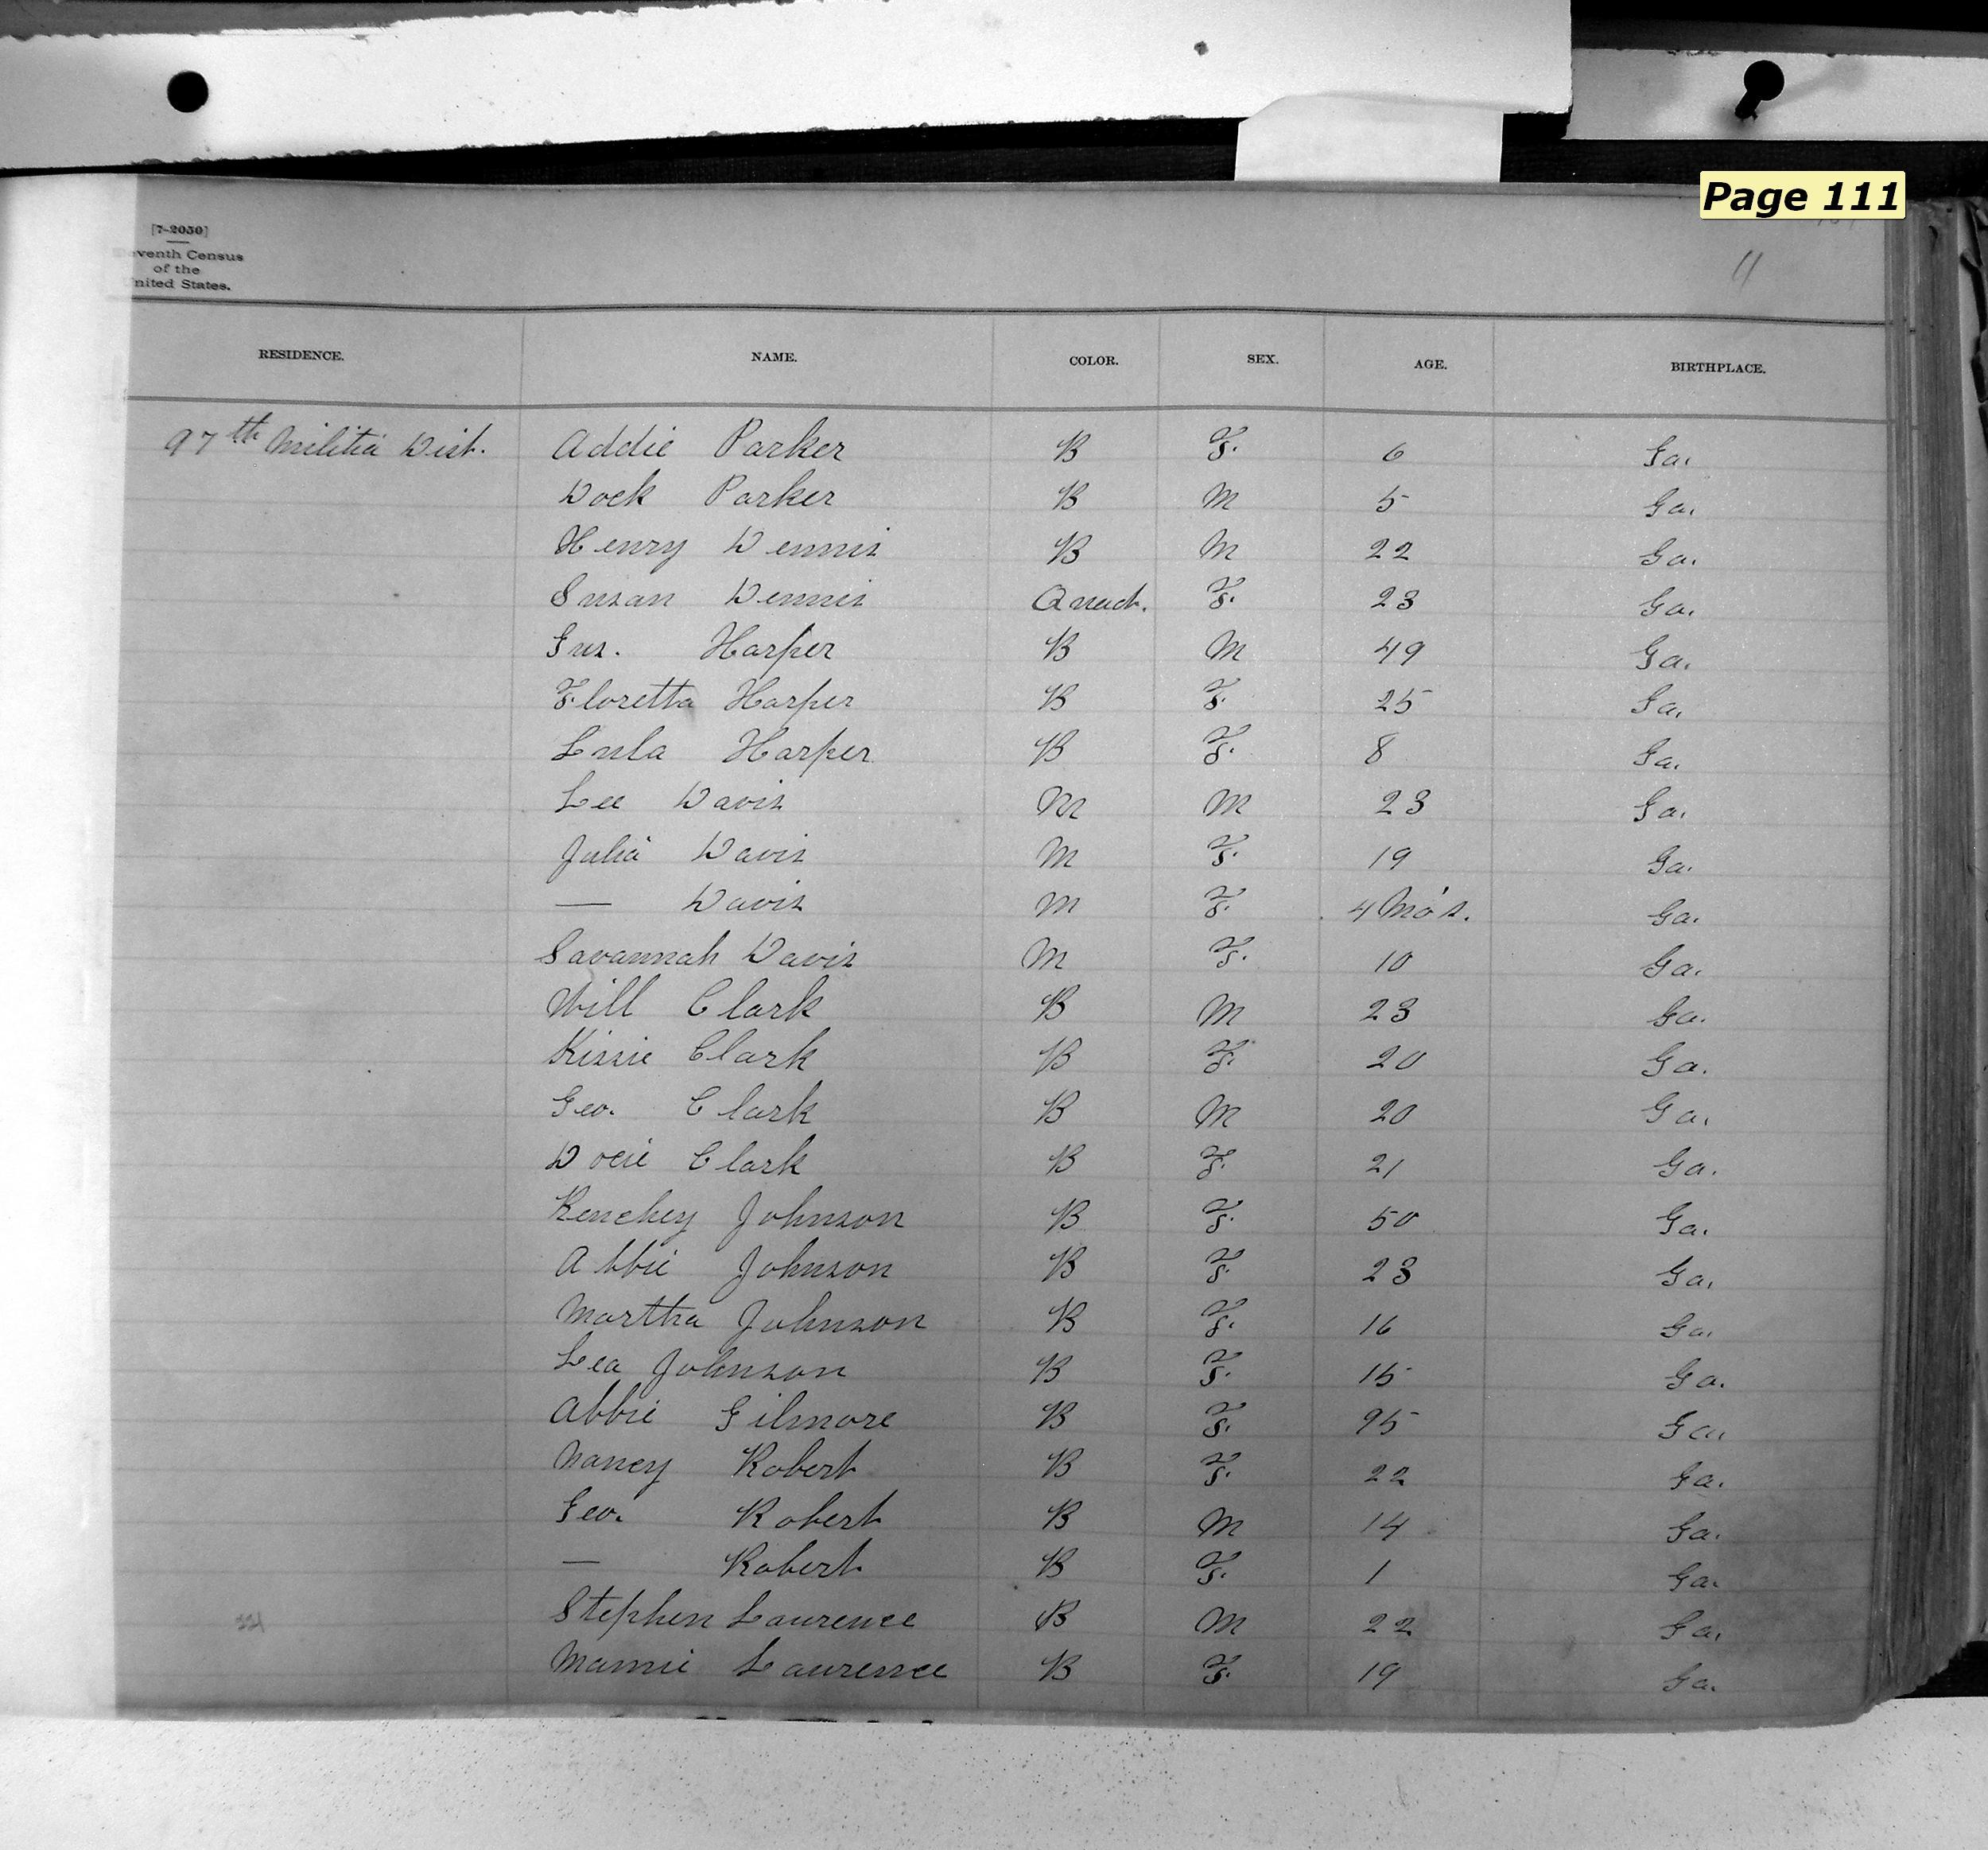 Page 111
[7-2050]
eventh Census
of the
nited States.
RESIDENCE. NAME. COLOR. SEX. AGE. BIRTHPLACE.
97th Militia Dist. Addie Parker B F. 6 Ga.
Dock Parker B M 5 Ga.
Henry Dennis B M 22 Ga.
Susan Dennis Quad. F. 23 Ga.
Gus. Harper B M 49 Ga.
Floretta Harper B F. 25 Ga.
Lula Harper B F. 8 Ga.
Lee Davis M M 23 Ga.
Julia Davis M F. 19 Ga.
— Davis M F. 4 Mo's. Ga.
Savannah Davis M F. 10 Ga.
Will Clark B M 23 Ga.
Kissie Clark B F. 20 Ga.
Geo. Clark B M 20 Ga.
Docie Clark B F. 21 Ga.
Kenchey Johnson B F. 50 Ga.
Abbie Johnson B F. 23 Ga.
Martha Johnson B F. 16 Ga.
Lea Johnson B F. 15 Ga.
Abbie Gilmore B F. 95 Ga.
Nancy Robert B F. 22 Ga.
Geo. Robert B M 14 Ga.
— Robert B F. 1 Ga.
Stephen Laurence B M 22 Ga.
Mamie Laurence B F. 19 Ga.